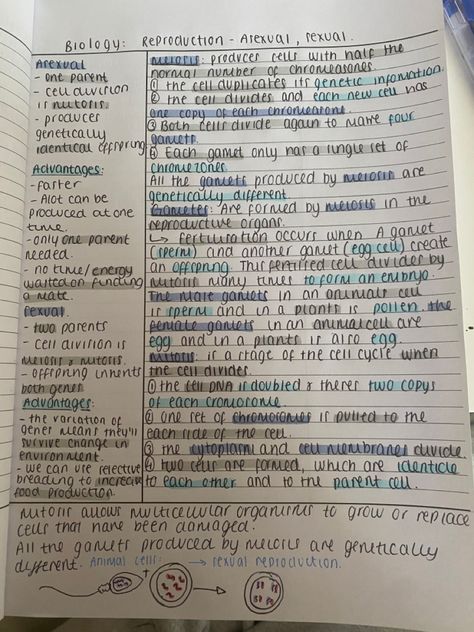 Biology: Reproduction - Asexual, sexual.
Asexual
- one parent
- cell division
is mitosis.
- producer
genetically
identical offspring
Advantages:
- faster
- Alot can be
produced at one
time.
- only one parent
needed.
- no time/energy
waisted on finding
a mate.
sexual
- two parents
- cell division is
meiosis & mitosis.
- offspring inherits
both genes
Advantages:
- the variation of
genes means they'll
survive change in
environment.
- we can use selective
breading to increase
food production.
meiosis: producer cells with half the
normal number of chromosones.
① the cell duplicates its genetic infomation.
② the cell divides and each new cell has
one copy of each chromosone.
③ Both cells divide again to make four
gamets.
④ Each gamet only has a single set of
chromezones.
All the gamets produced by meiosis are
genetically different.
Gametes: Are formed by meiosis in the
reproductive organs.
↳ fertilisation occurs when A gamet
(sperm) and another gamet (egg cell) create
an offspring. This fertilised cell divides by
mitosis many times to form an embryo.
The male gamets in an animals cell
is sperm and in a plants is pollen. the
female gamets in an animal cell are
egg and in a plants is also egg.
mitosis: is a stage of the cell cycle when
the cell divides.
① the cell DNA is doubled & theres two copys
of each cromosome.
② one set of chromosomes is pulled to the
each side of the cell.
③ the cytoplasm and cell membranes divide.
④ two cells are formed, which are identicle
to each other and to the parent cell.
mitosis allows multicellular organisms to grow or replace
cells that have been damaged.
All the gamets produced by meiosis are genetically
different. Animal cells: → sexual reproduction.
+